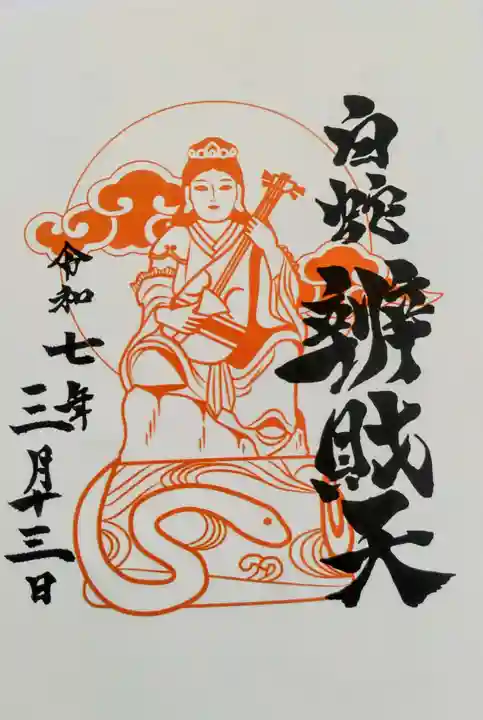 白蛇辨財天
令和七年三月十三日